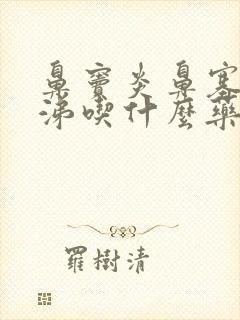 鼻竇炎鼻塞
涕喫什麼藥
羅樹清